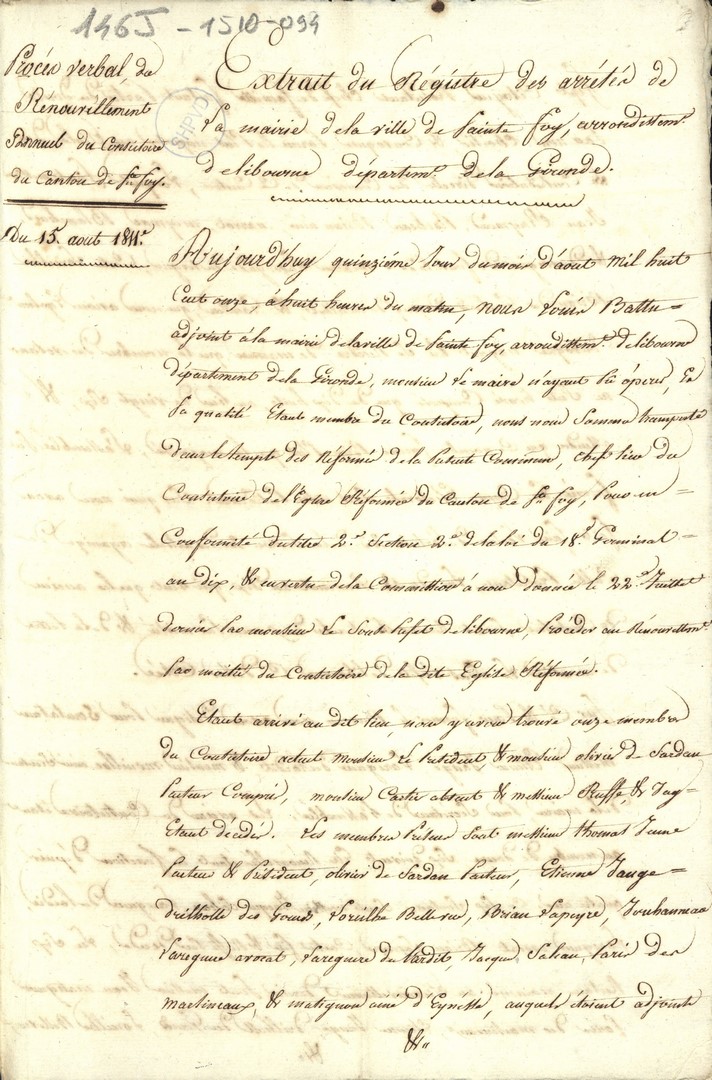 146J - 1510-094
Procès verbal de
Rénouvellement
du Consistoire
du Canton de Ste foy.
Du 15. aout 1811.
SHPVD
Extrait du Régistre des arrétés de
La mairie de la ville de Sainte foy, arrondissemt.
de libourne départemt. de la Gironde.
Aujourd'huy quinziéme Jour du mois d'aout mil huit
Cent onze, à huit heures du matin, nous Louis Battu
adjoint à la mairie de la ville de Sainte foy, arrondissemt. de libourne
département de la Gironde, monsieur Le maire n'ayant pû opérer, En
Sa qualité Etant membre du Consistoire, nous nous Sommes transporté
dans le temple des Réformés de la Présente Commune, chef lieu du
Consistoire de l'Eglise Réformée du Canton de Ste foy, Pour en
Conformité du titre 2e. Section 2e. de la loi du 18e. Germinal
an dix, & en vertu de la Commission à nous Donnée le 22e. Juillet
dernier Par monsieur Le Sous Préfet de libourne, Procéder au Rénouvellemt.
Par moitié du Consistoire de la dite Eglise Réformée.
Etant arrivé au dit lieu, nous y avons trouvé onze membres
du Consistoire actuel monsieur Le Président, & monsieur olivier de Sardan
Pasteur Compris, monsieur absent & messieurs Ruffe, & Jay
Etant décédés. Les membres Présens Sont messieurs thomas Jeune
Pasteur & Président, olivier de Sardan Pasteur, Etienne Jauge
des Gours, Bellerue, Brian Lapeyre, Jouhanneau
Laregnere avocat, Laregnere du Jardit, Jacques Paris des
martineaux, & matignon ainé d'Eynesse, auquels étoient adjoints
&"